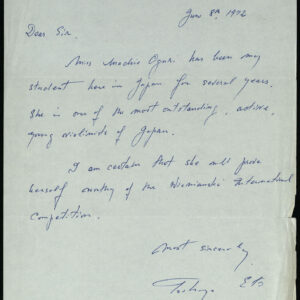 June 8th 1972
Dear Sir,
Miss Machie Oguri has been my
student here in Japan for several years.
She is one of the most outstanding, active,
young violinists of Japan.
I am certain that she will prove
herself worthy of the Wieniawski International
Competition.
Most sincerely,
Toshiya Eto